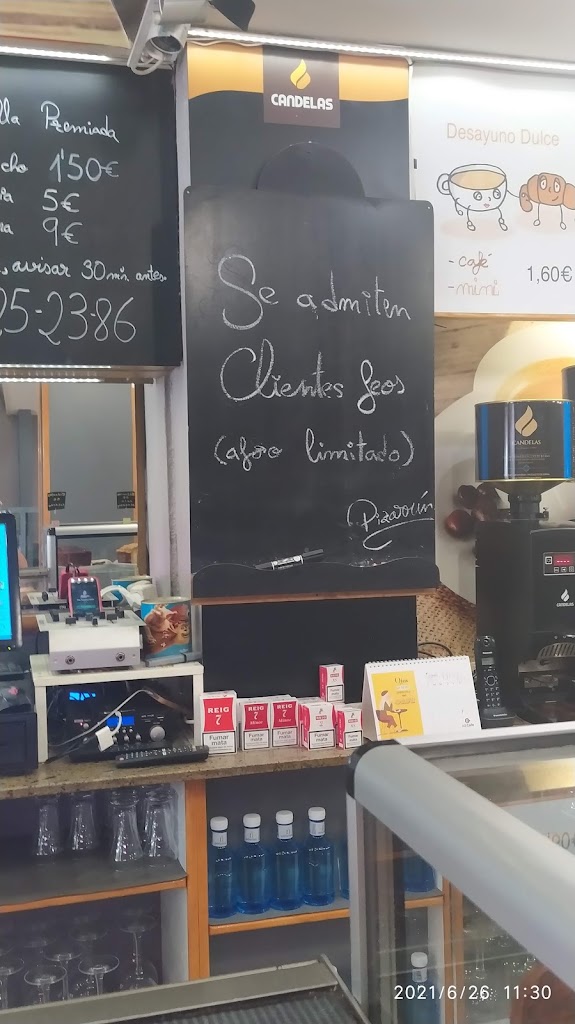 CANDELAS
lla Premiada
cho 1'50€
ia 5€
na 9€
avisar 30 min. antes.
25-23-86
Desayuno Dulce
- café
- mini
1,60€
Se admiten
Clientes feos
(aforo limitado)
Pizarrín
CANDELAS
CANDELAS
REIG
7
Fumar
mata
REIG
7
Fumar
mata
REIG
7
Fumar
mata
2021/6/26 11:30